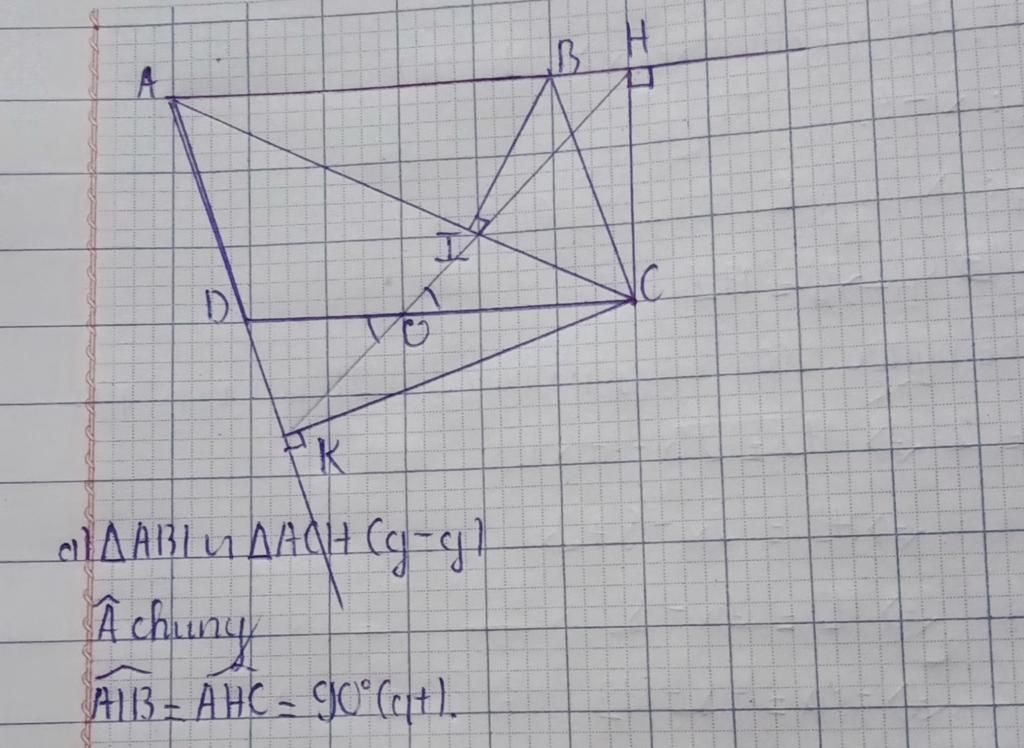 A
B
H
I
D
O
C
K
a) ΔABI ∽ ΔACH (g-g)
Â chung
AIB̂ = AHĈ = 90° (gt).